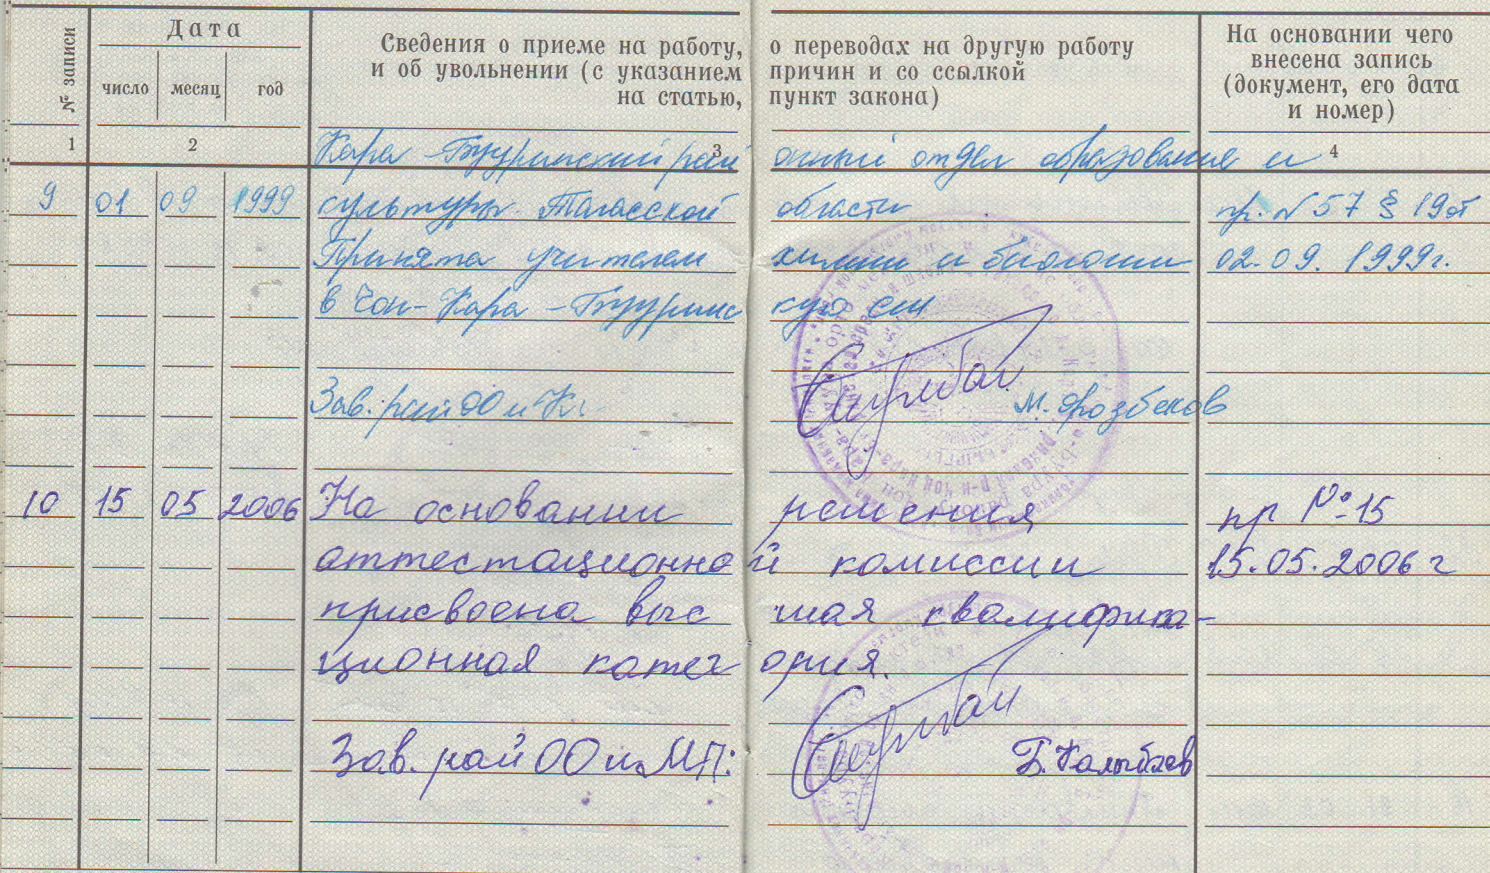 № записи
Дата
Сведения о приеме на работу, о переводах на другую работу
и об увольнении (с указанием причин и со ссылкой
на статью, пункт закона)
На основании чего
внесена запись
(документ, его дата
и номер)
число месяц год
1 2 3 4
Кара-Бууринский районный отдел образования и
9 01 09 1999 культуры Таласской области пр. № 57 § 19 от
Принята учителем химии и биологии 02.09.1999г.
в Чон-Кара-Бууринскую сш
Зав. рай ОО и Кл.
10 15 05 2006 На основании решения пр №15
аттестационной комиссии 15.05.2006 г
присвоена высшая квалифика-
ционная категория.
Зав. рай ОО и МП: Б. Калыбаев